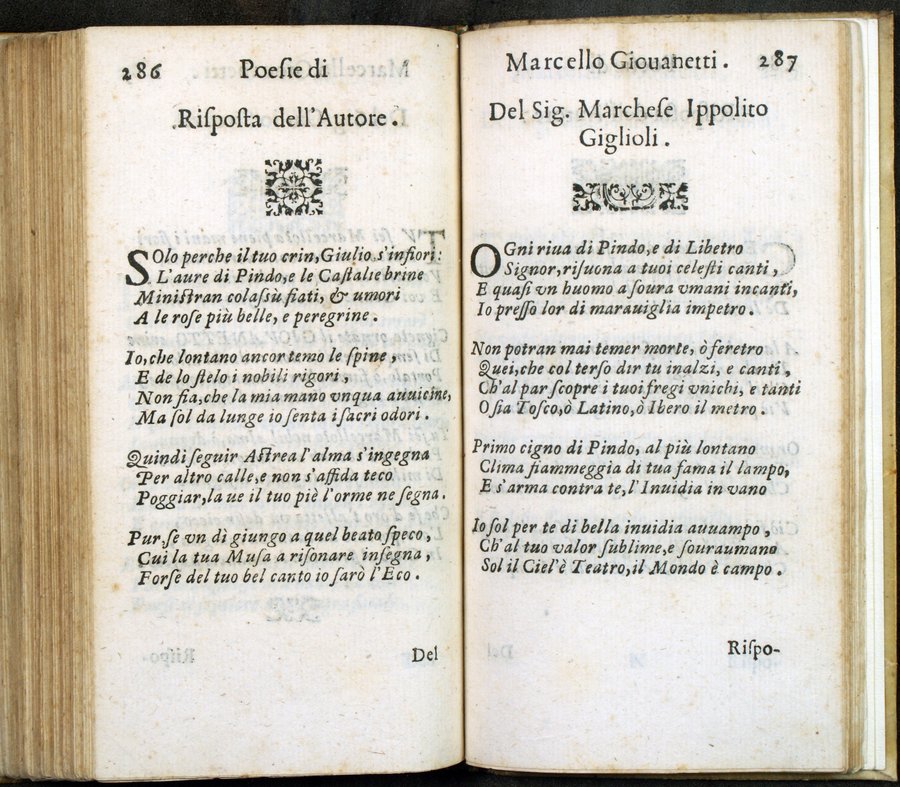 286 Poeſie di
Riſpoſta dell'Autore.
SOlo perche il tuo crin, Giulio s'infiori:
L'aure di Pindo, e le Caſtalie brine
Miniſtran colaſsù fiati, & umori
A le roſe più belle, e peregrine.
Io, che lontano ancor temo le ſpine,
E de lo ſtelo i nobili rigori,
Non fia, che la mia mano vnqua auuicine,
Ma ſol da lunge io ſenta i ſacri odori.
Quindi ſeguir Aſtrea l'alma s'ingegna
Per altro calle, e non s'affida teco
Poggiar, la ue il tuo piè l'orme ne ſegna.
Pur, ſe vn di giungo a quel beato ſpeco,
Cui la tua Muſa a riſonare inſegna,
Forſe del tuo bel canto io ſarò l'Eco.
Del
Marcello Giouanetti. 287
Del Sig. Marcheſe Ippolito
Giglioli.
OGni riua di Pindo, e di Libetro
Signor, riſuona a tuoi celeſti canti,
E quaſi vn huomo a ſoura vmani incanti,
Io preſſo lor di marauiglia impetro.
Non potran mai temer morte, ò feretro
Quei, che col terſo dir tu inalzi, e canti,
Ch'al par ſcopre i tuoi fregi vnichi, e tanti
O ſia Toſco, ò Latino, ò Ibero il metro.
Primo cigno di Pindo, al più lontano
Clima fiammeggia di tua fama il lampo,
E s'arma contra te, l'Inuidia in vano
Io ſol per te di bella inuidia auuampo,
Ch'al tuo valor ſublime, e ſouraumano
Sol il Ciel'è Teatro, il Mondo è campo.
Riſpo-